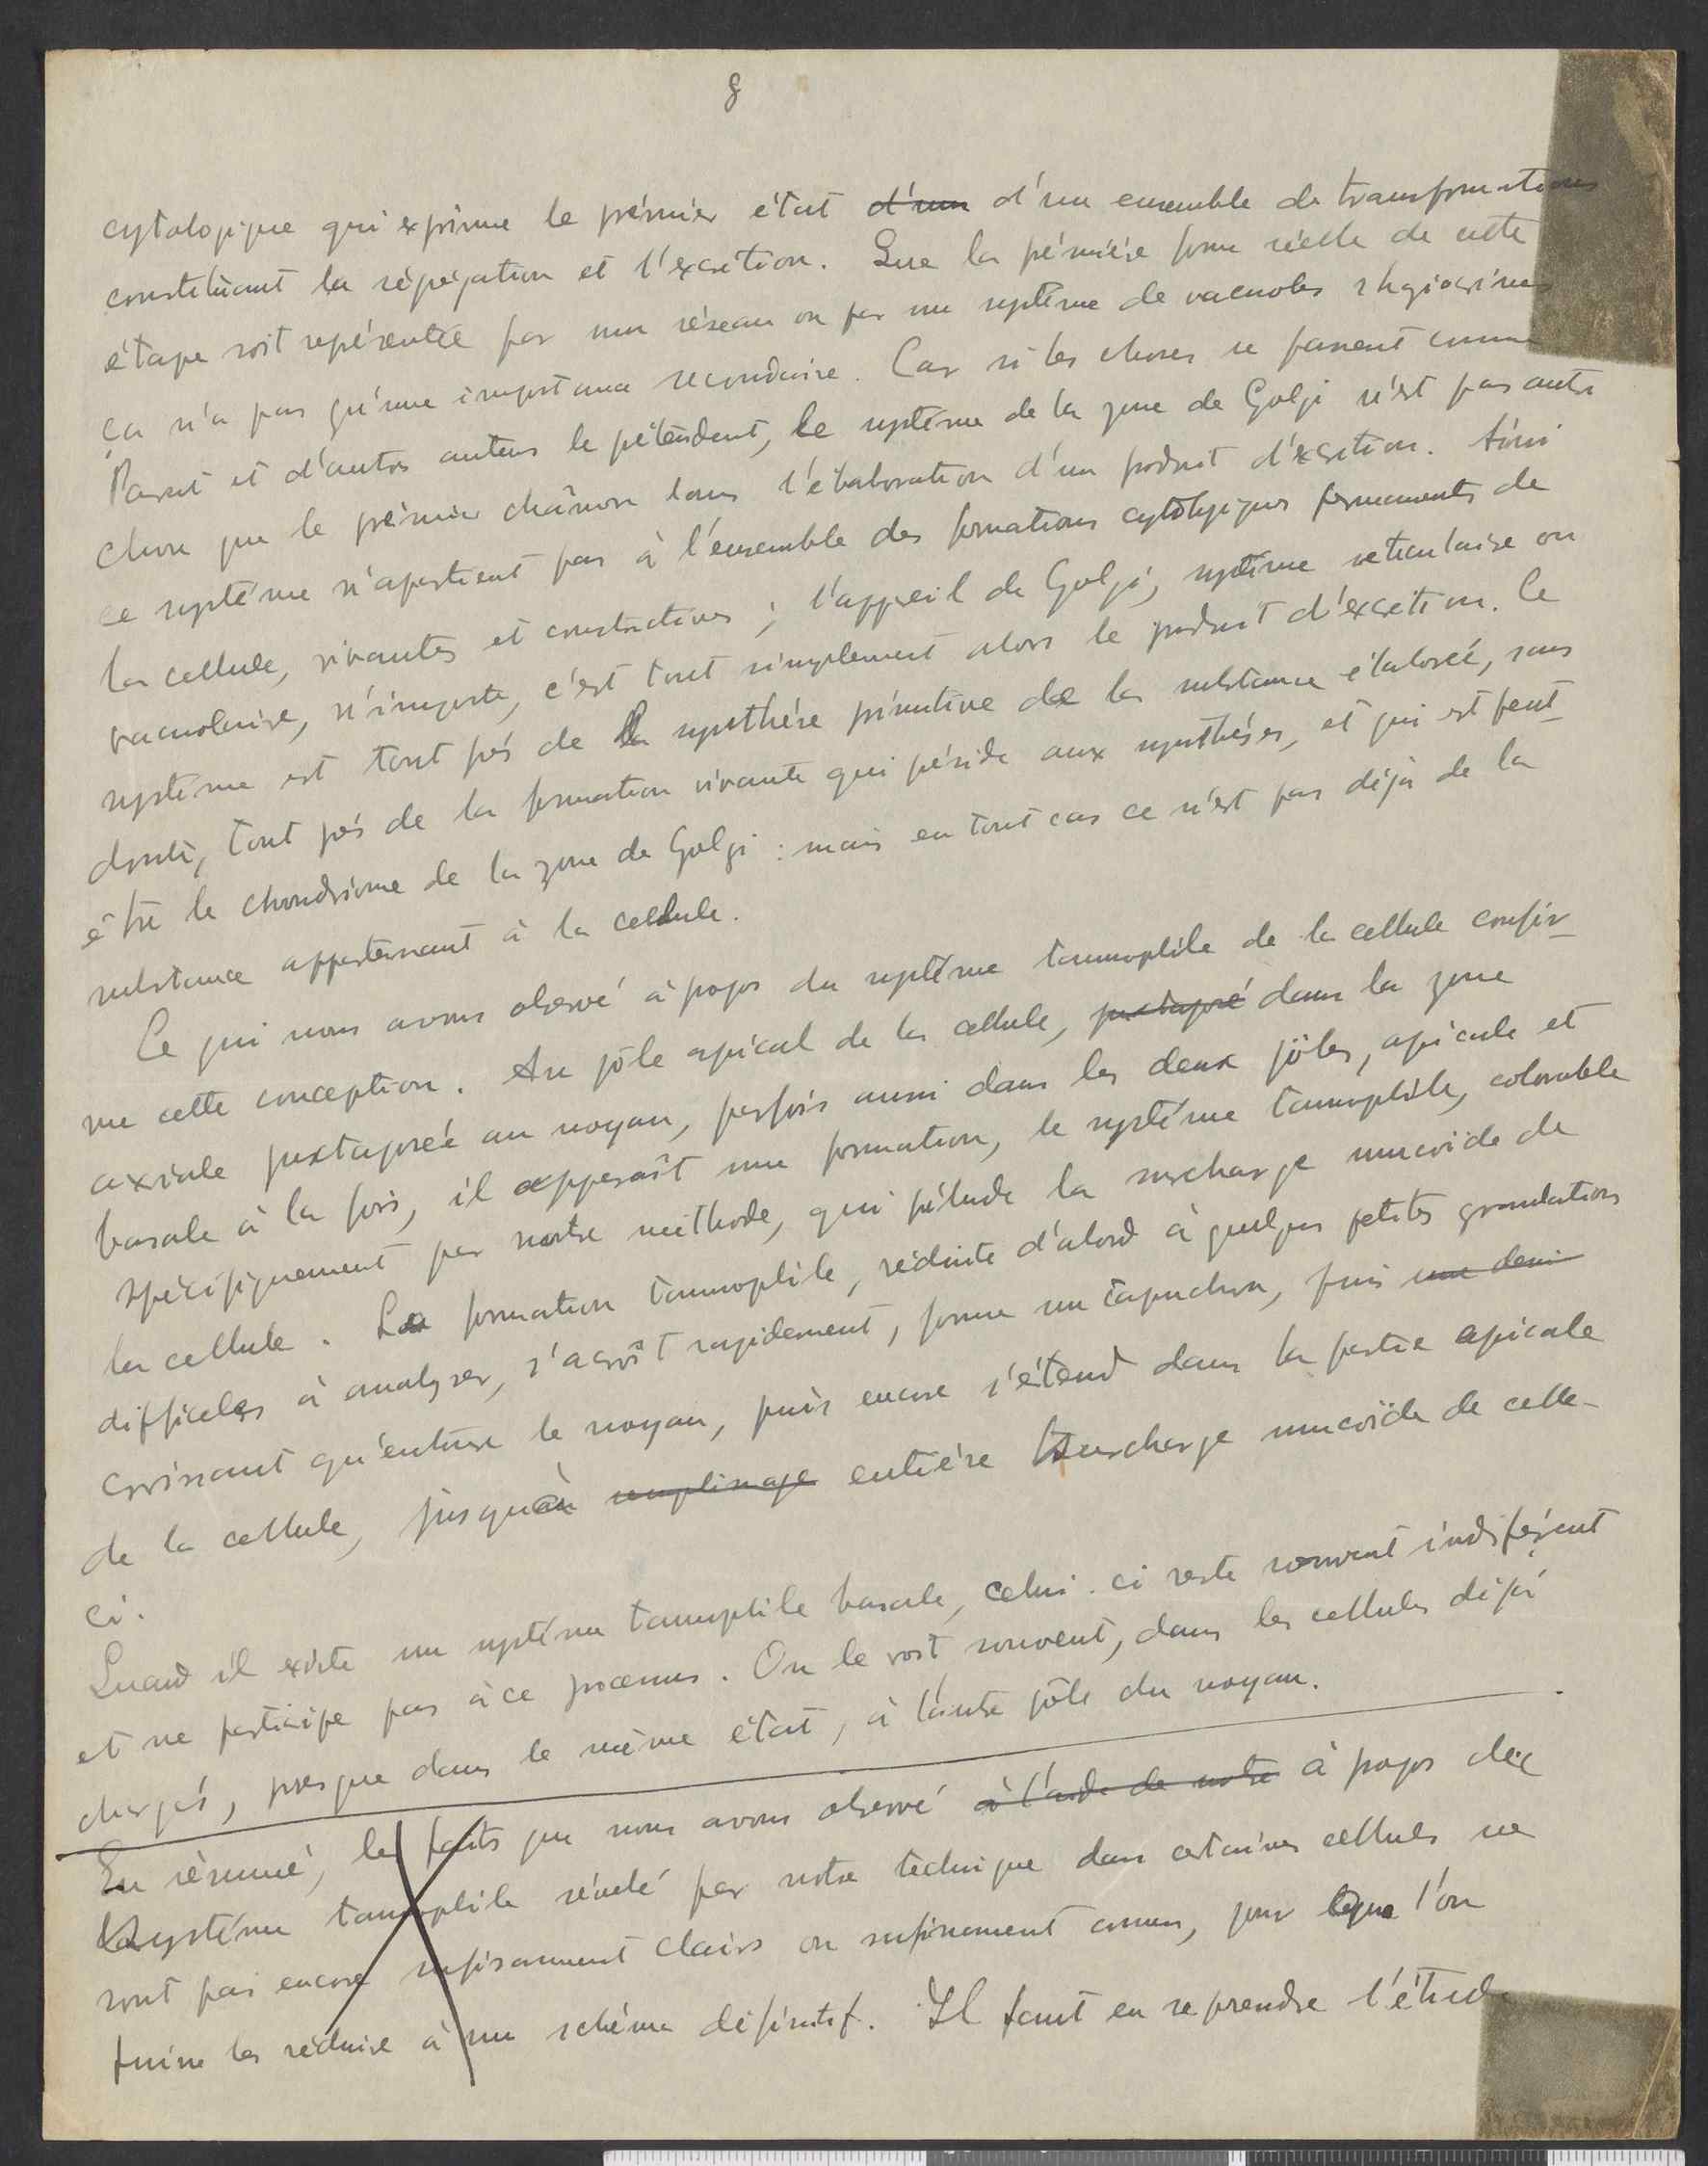 8
cytologique qui exprime le prémier état d'un d'un ensemble de transformations
constituant la ségrégation et l'excrétion. Que la prémière forme réelle de cette
étape soit représentée par un réseau ou par un système de vacuoles rhagiocrines
ça n'a pas qu'une importance secondaire. Car si les choses se passent comme
Parat et d'autres auteurs le prétendent, le système de la zone de Golgi n'est pas autre
chose que le prémier chaînon dans l'élaboration d'un produit d'excrétion. Ainsi
ce système n'apartient pas à l'ensemble des formations cytologiques permanents de
la cellule, vivantes et constructives ; l'appareil de Golgi, système reticulaire ou
vacuolaire, n'importe, c'est tout simplement alors le produit d'excrétion. Ce
système est tout près de la synthèse primitive de la substance élaborée, sans
doute, tout près de la formation vivante qui préside aux synthèses, et qui est peut-
être le chondriome de la zone de Golgi : mais en tout cas ce n'est pas déjà de la
substance appartenant à la cellule.
Ce qui nous avons observé à propos du système tannophile de la cellule confir-
me cette conception. Au pôle apical de la cellule, juxtaposé dans la zone
axiale juxtaposée au noyau, parfois aussi dans les deux pôles, apicale et
basale à la fois, il apparaît une formation, le système tannophile, colorable
spécifiquement par notre méthode, qui prélude la surcharge mucoïde de
la cellule. La formation tannophile, réduite d'abord à quelques petites granulations
difficiles à analyser, s'acroît rapidement, forme un capuchon, puis un demi
croissant qu'entoure le noyau, puis encore s'étend dans la partie apicale
de la cellule, jusqu'à remplissage entière surcharge mucoïde de celle-
ci.
Quand il existe un système tannophile basale, celui-ci reste souvent indiférent
et ne participe pas à ce processus. On le voit souvent, dans les cellules déjà
chargés, presque dans le même état, à l'autre pôle du noyau.
En résumé, les faits que nous avons observé à l'aide de notre à propos de
système tannophile révélé par notre technique dans certaines cellules ne
sont pas encore sufisamment clairs ou sufisamment connus, pour que l'on
puisse les réduire à un schéma définitif. Il faut en reprendre l'étude